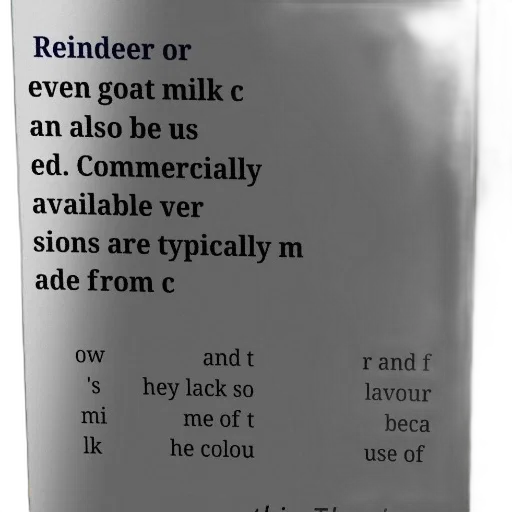 Reindeer or
even goat milk c
an also be us
ed. Commercially
available ver
sions are typically m
ade from c
ow
's
mi
lk
and t
hey lack so
me of t
he colou
r and f
lavour
beca
use of